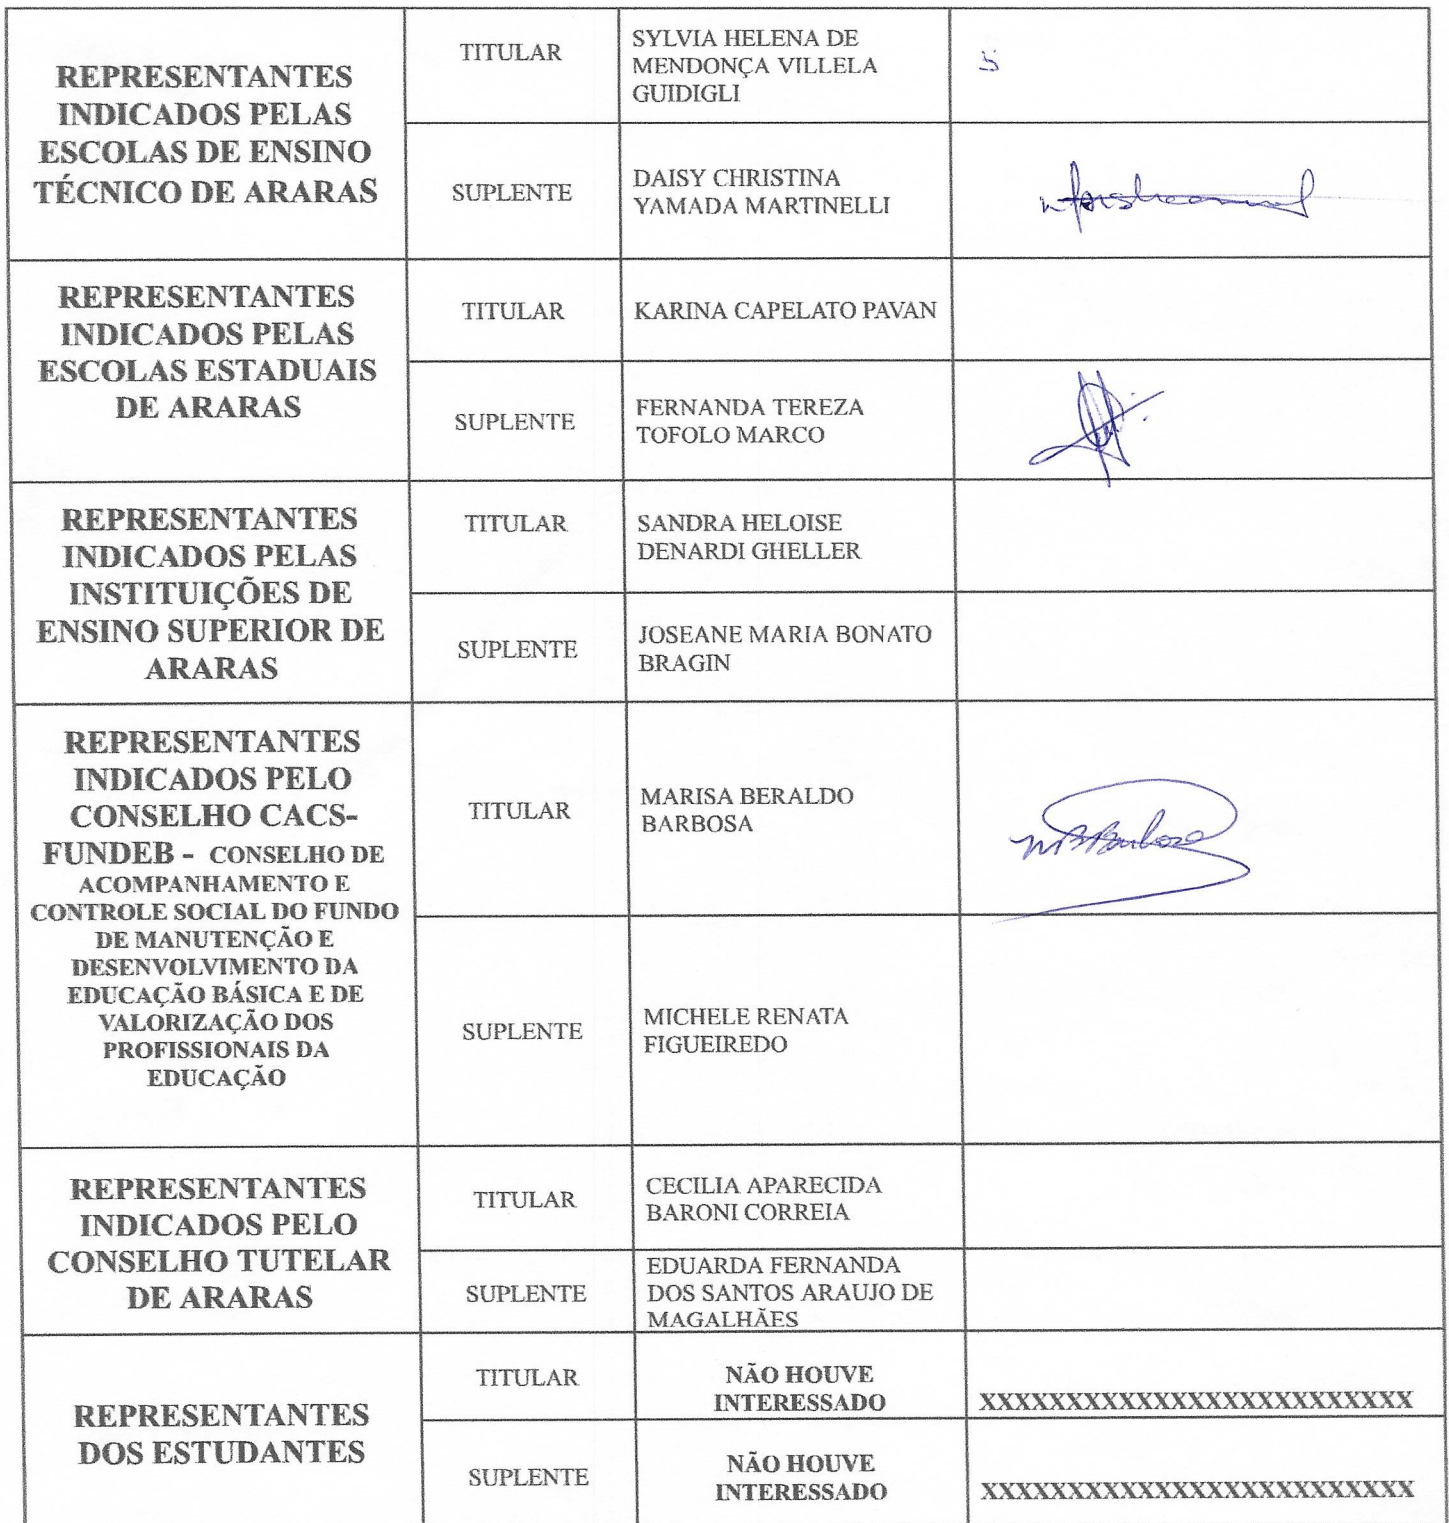 REPRESENTANTES
INDICADOS PELAS
ESCOLAS DE ENSINO
TÉCNICO DE ARARAS
TITULAR
SYLVIA HELENA DE
MENDONÇA VILLELA
GUIDIGLI
SUPLENTE
DAISY CHRISTINA
YAMADA MARTINELLI
REPRESENTANTES
INDICADOS PELAS
ESCOLAS ESTADUAIS
DE ARARAS
TITULAR
KARINA CAPELATO PAVAN
SUPLENTE
FERNANDA TEREZA
TOFOLO MARCO
REPRESENTANTES
INDICADOS PELAS
INSTITUIÇÕES DE
ENSINO SUPERIOR DE
ARARAS
TITULAR
SANDRA HELOISE
DENARDI GHELLER
SUPLENTE
JOSEANE MARIA BONATO
BRAGIN
REPRESENTANTES
INDICADOS PELO
CONSELHO CACS-
FUNDEB - CONSELHO DE
ACOMPANHAMENTO E
CONTROLE SOCIAL DO FUNDO
DE MANUTENÇÃO E
DESENVOLVIMENTO DA
EDUCAÇÃO BÁSICA E DE
VALORIZAÇÃO DOS
PROFISSIONAIS DA
EDUCAÇÃO
TITULAR
MARISA BERALDO
BARBOSA
MBBarbosa
SUPLENTE
MICHELE RENATA
FIGUEIREDO
REPRESENTANTES
INDICADOS PELO
CONSELHO TUTELAR
DE ARARAS
TITULAR
CECILIA APARECIDA
BARONI CORREIA
SUPLENTE
EDUARDA FERNANDA
DOS SANTOS ARAUJO DE
MAGALHÃES
REPRESENTANTES
DOS ESTUDANTES
TITULAR
NÃO HOUVE
INTERESSADO
XXXXXXXXXXXXXXXXXXXXXXXXX
SUPLENTE
NÃO HOUVE
INTERESSADO
XXXXXXXXXXXXXXXXXXXXXXXXX